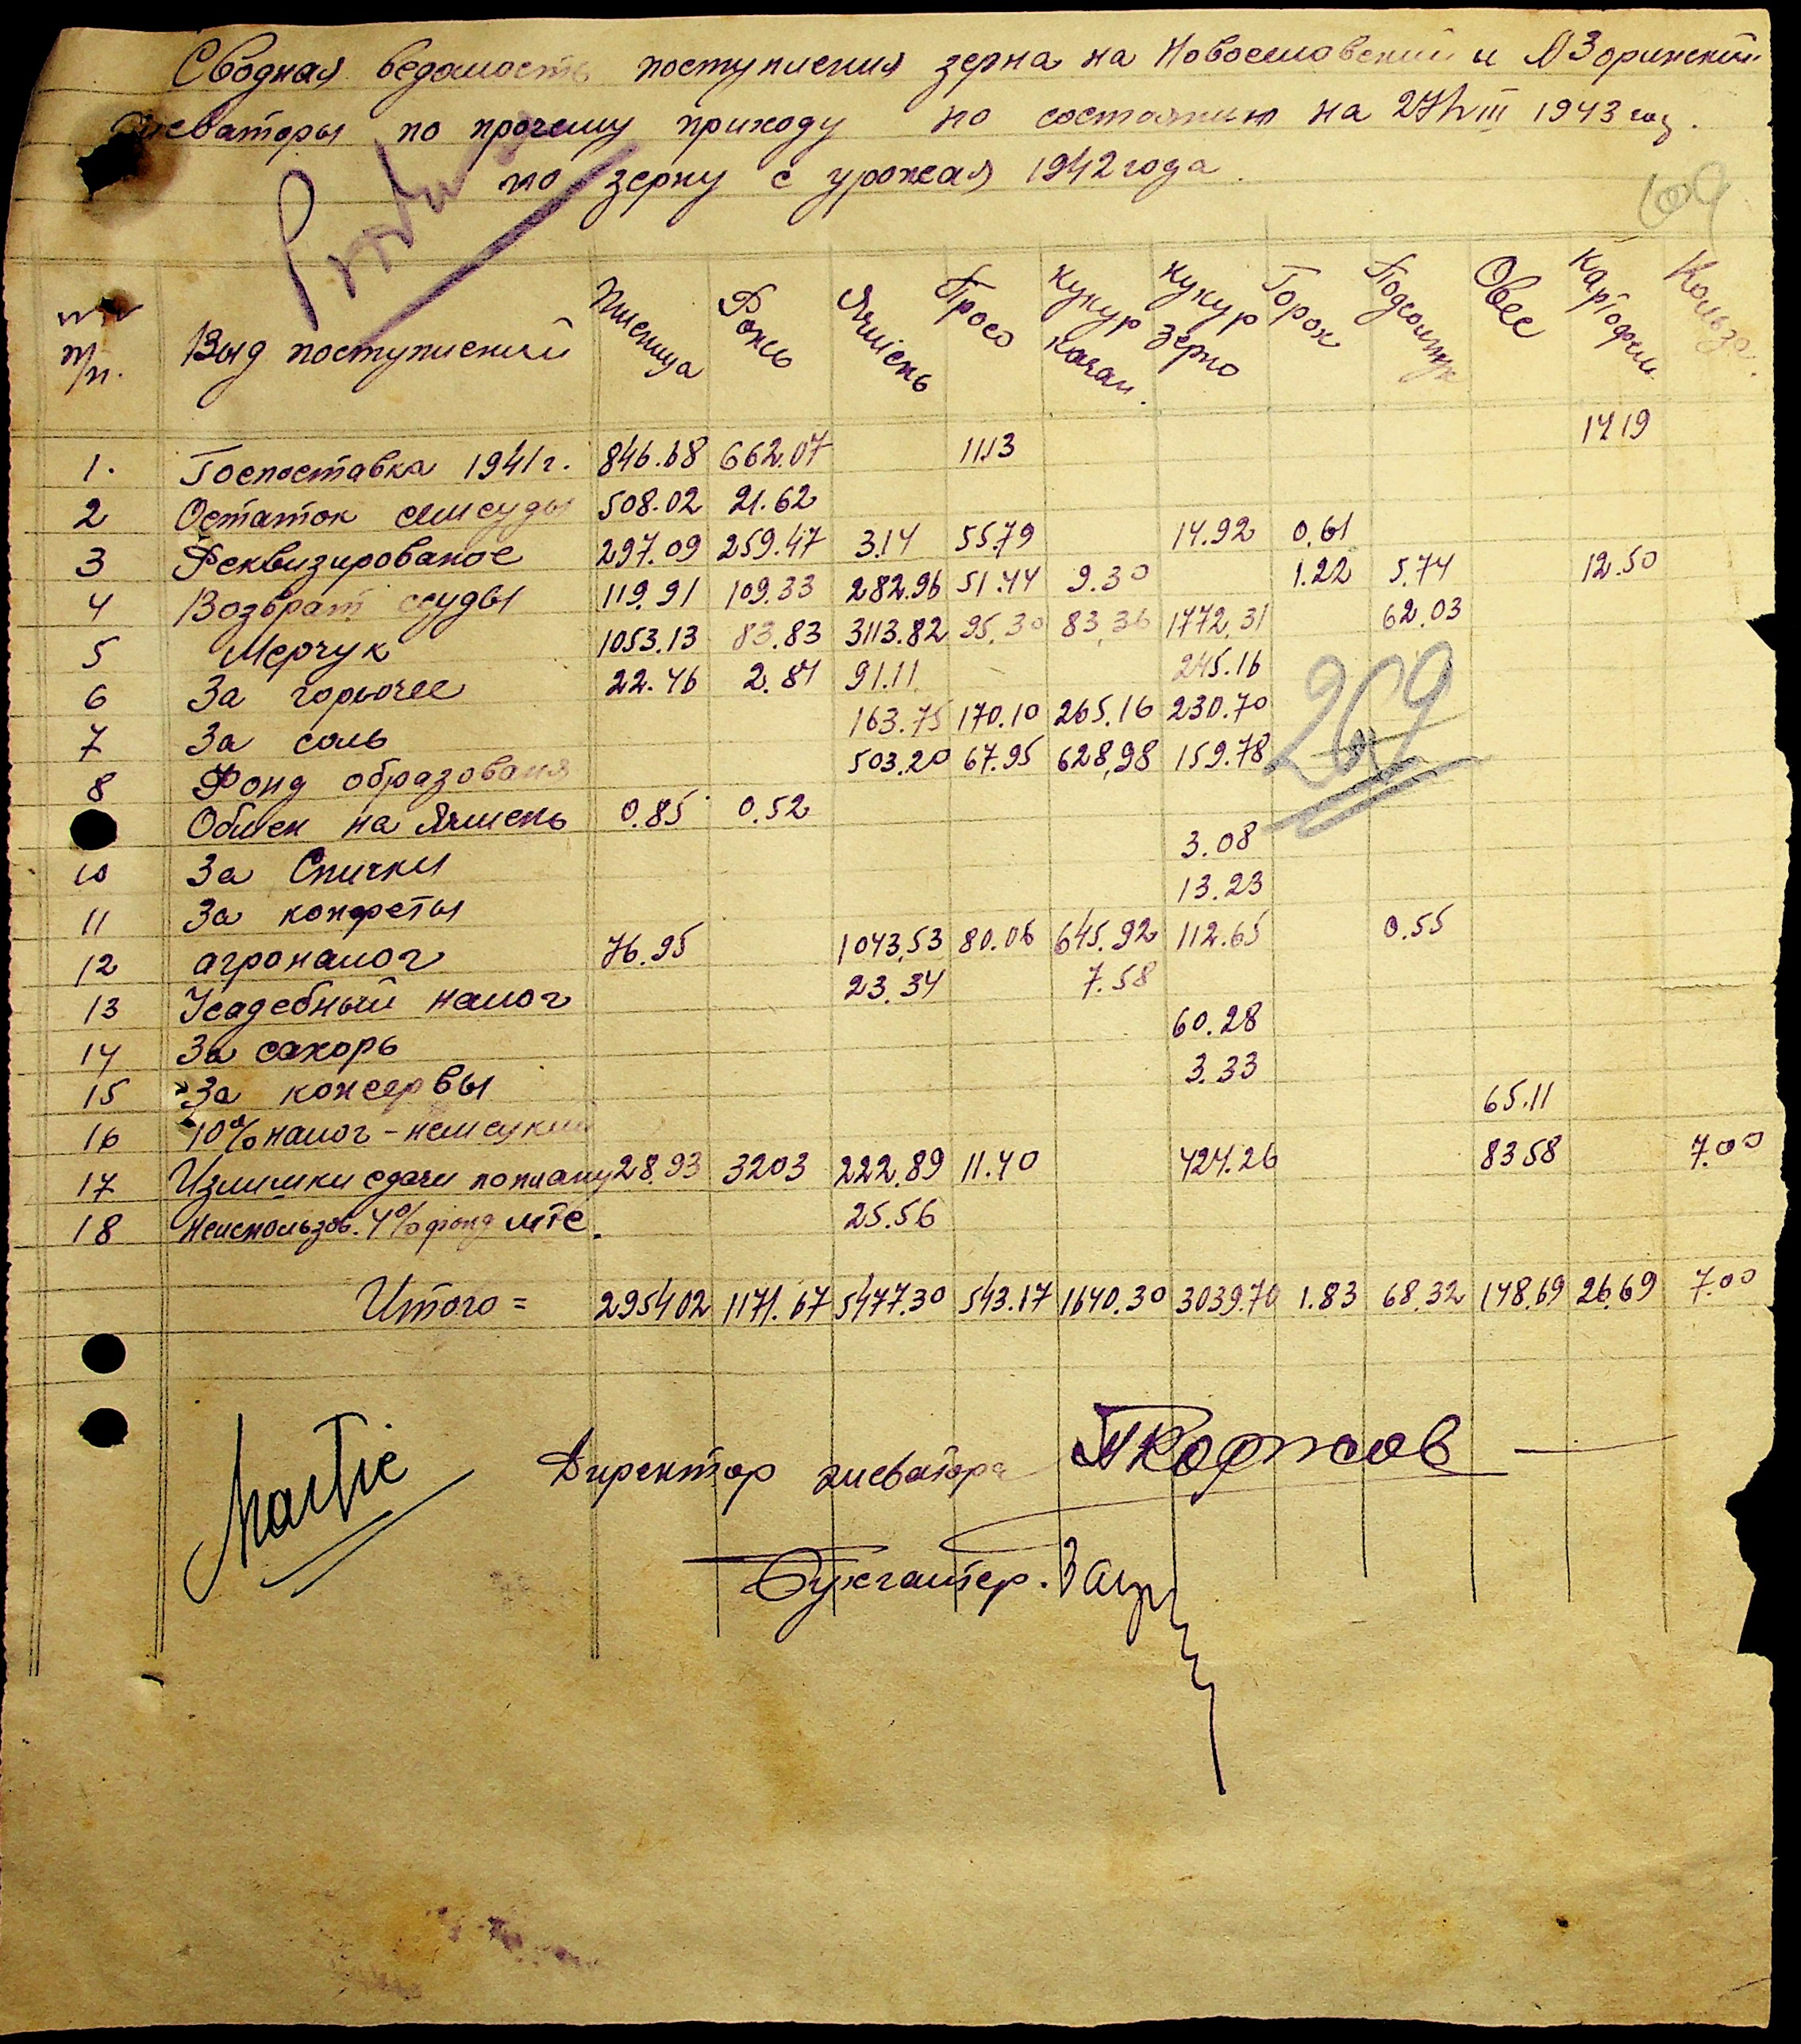 Сводная ведомость поступления зерна на и
элеваторы по прочему приходу по состоянию на 27/VIII 1943 год.
по зерну с урожая 1942 года.
109
№№ п/п. Вид поступлений Пшеница Рожь Ячмень Просо Кукур качан. Кукур зерно Горох Подсолнух Овес Картофель Кользе.
1. Госпоставка 1941 г. 846.68 662.07 11.13 14 19
2 Остаток семсуды 508.02 21.62
3 Реквизированое 297.09 259.47 3.14 55.79 14.92 0.61
4 Возврат ссуды 119.91 109.33 282.96 51.44 9.30 1.22 5.74 12.50
5 Мерчук 1053.13 83.83 3113.82 95.30 83,36 1772,31 62.03
6 За горючее 22.46 2.81 91.11 245.16
7 За соль 163.75 170.10 265.16 230.70
8 Фонд образования 503.20 67.95 628,98 159.78
Обмен на Ячмень 0.85 0.52
10 За Спички 3.08
11 За конфеты 13.23
12 агроналог 76.95 1043,53 80.06 645.92 112.65 0.55
13 Усадебный налог 23.34 7.58
14 За сахорь 60.28
15 За консервы 3.33
16 10% налог - 65.11
17 Излишки сдачи по плану 28.93 32 03 222.89 11.40 424.26 83 58 7.00
18 Неиспользов. 4% фонд мтс. 25.56
Итого = 2954 02 1171.67 5477.30 543.17 1640.30 3039.70 1.83 68.32 148.69 26.69 7.00
269
Директор элеватора
Бухгалтер.